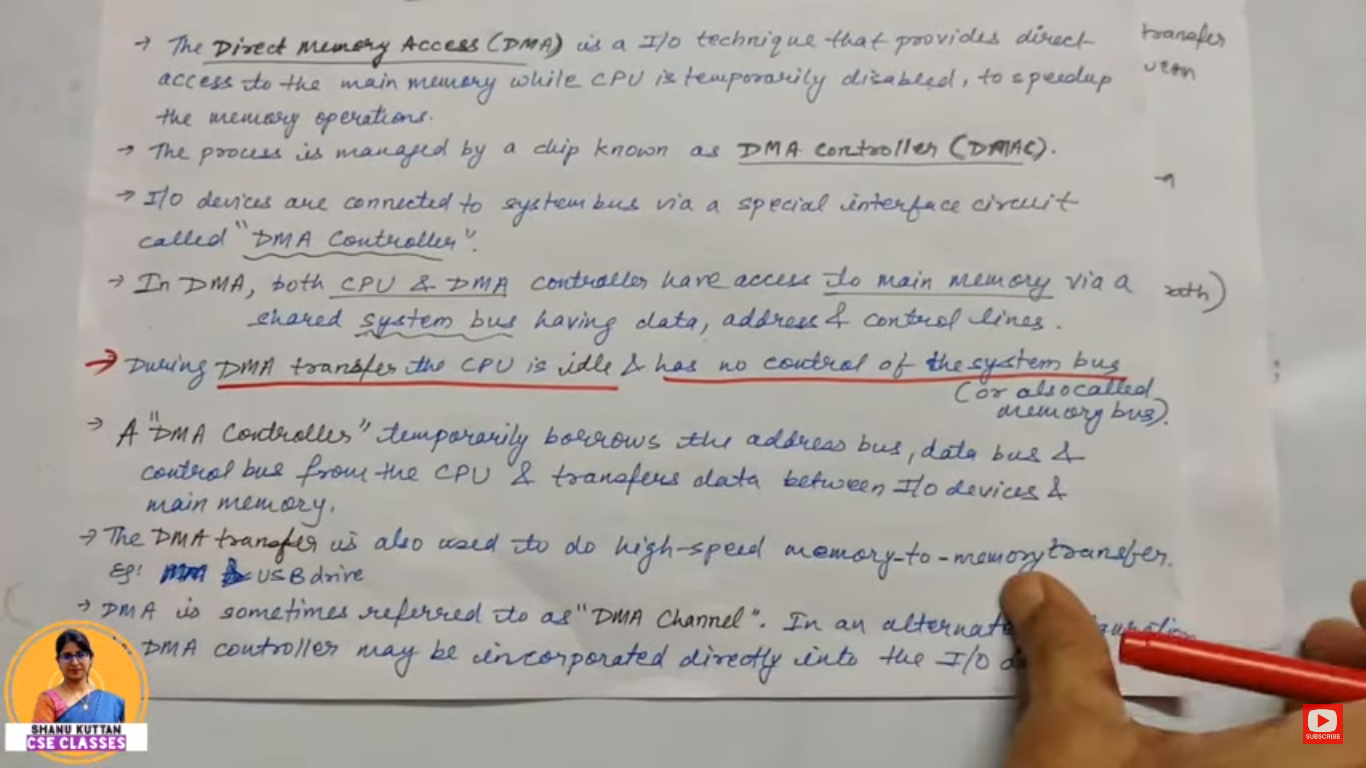 → The Direct Memory Access (DMA) is a I/O technique that provides direct
access to the main memory while CPU is temporarily disabled, to speedup
the memory operations.
→ The process is managed by a chip known as DMA controller (DMAC).
→ I/O devices are connected to system bus via a special interface circuit
called "DMA Controller".
→ In DMA, both CPU & DMA controller have access to main memory via a
shared system bus having data, address & control lines.
→ During DMA transfer the CPU is idle & has no control of the system bus
(or also called
memory bus).
→ A "DMA Controller" temporarily borrows the address bus, data bus &
control bus from the CPU & transfers data between I/O devices &
main memory.
→ The DMA transfer is also used to do high-speed memory-to-memory transfer.
Eg: USB drive
→ DMA is sometimes referred to as "DMA Channel". In an alternate
DMA controller may be incorporated directly into the I/O
transfer
SHANU KUTTAN
CSE CLASSES
SUBSCRIBE